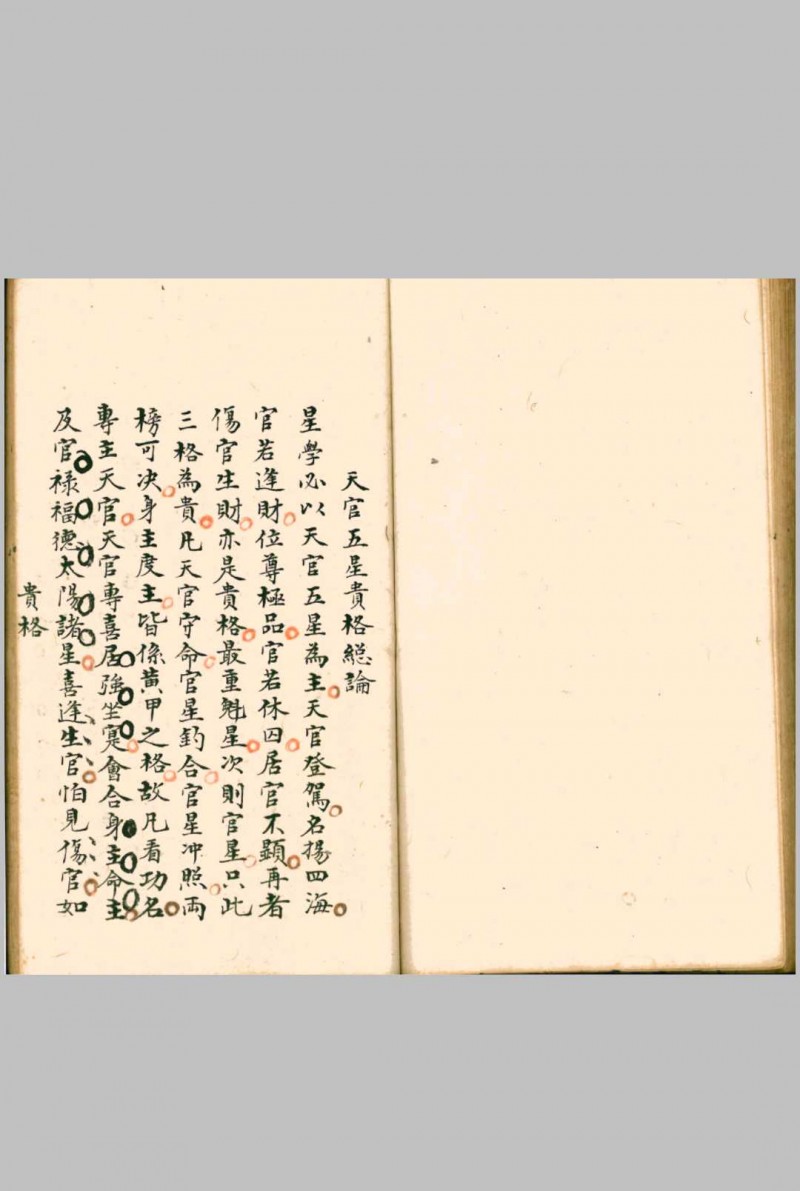 天官五星貴格総論
星學必以天官五星為主天官登駕名揚四海
官若逢財位尊極品官若休囚居官不顯再者
傷官生財亦是貴格最重魁星次則官星只此
三格為貴凡天官守命官星釣合官星冲照両
榜可决身主度主皆係黄甲之格故凡看功名
專主天官天官專喜居強坐寔會合身主命主
及官禄福德太陽諸星喜逢生官怕見傷官如
貴格